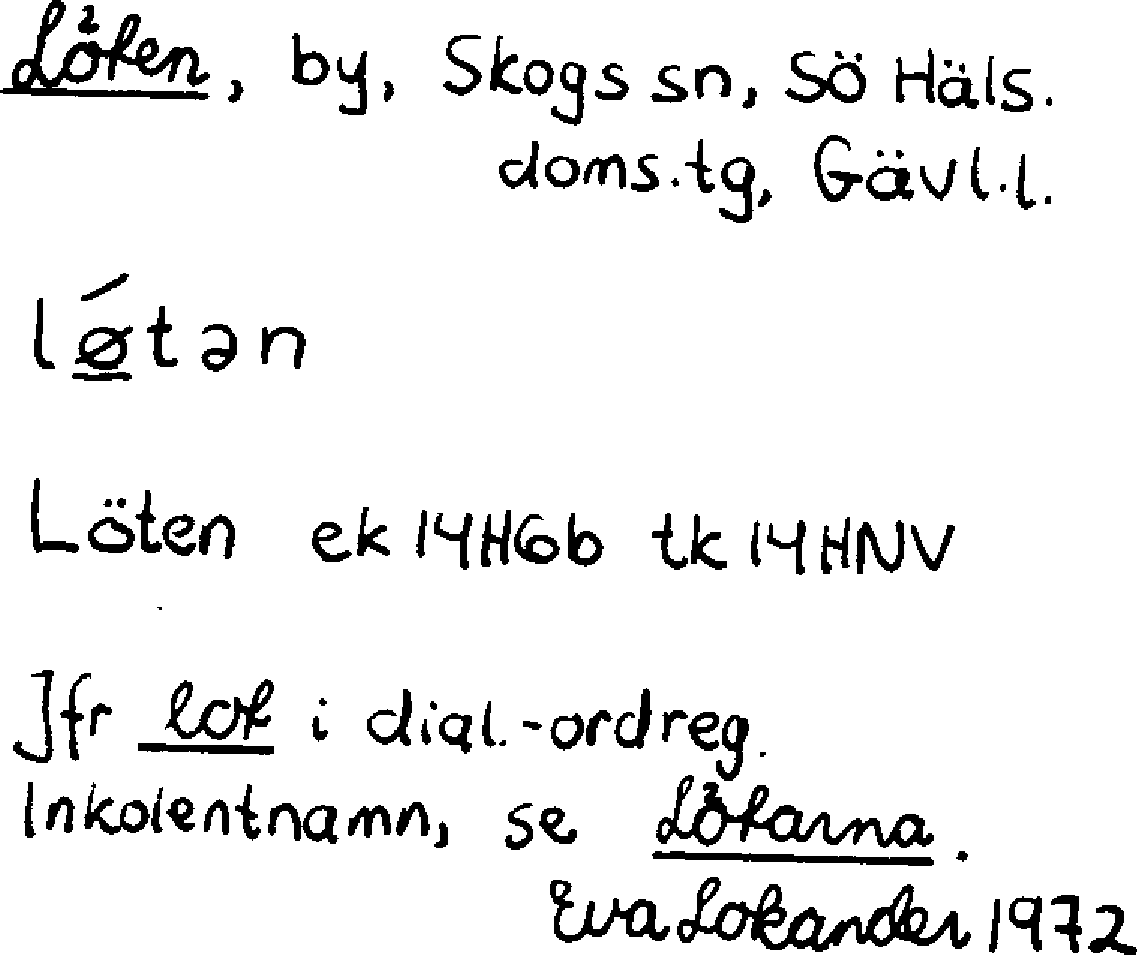 Löten, by, Skogs sn, Sö Häls.
doms.tg, Gävl.l.
lǿtən
Löten ek 14H6b tk 14HNV
Jfr lot i dial.-ordreg.
Inkolentnamn, se Lötarna.
Eva Lokander 1972